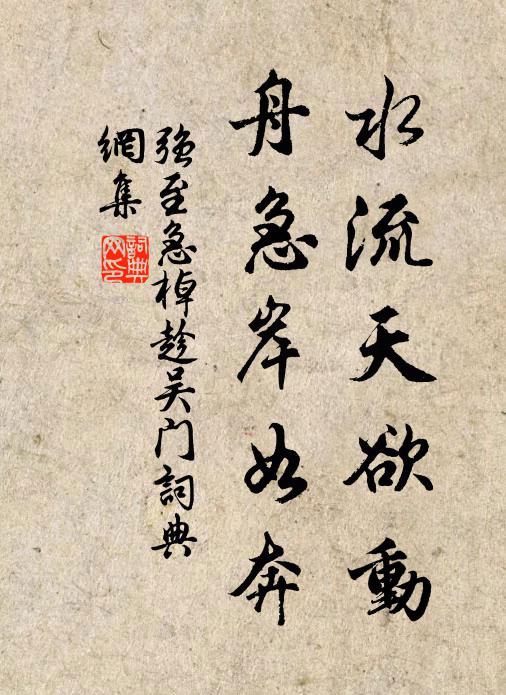 水流天欲動
舟急岸如奔
強至急棹趁吴门詞典
網集
詞典
网印